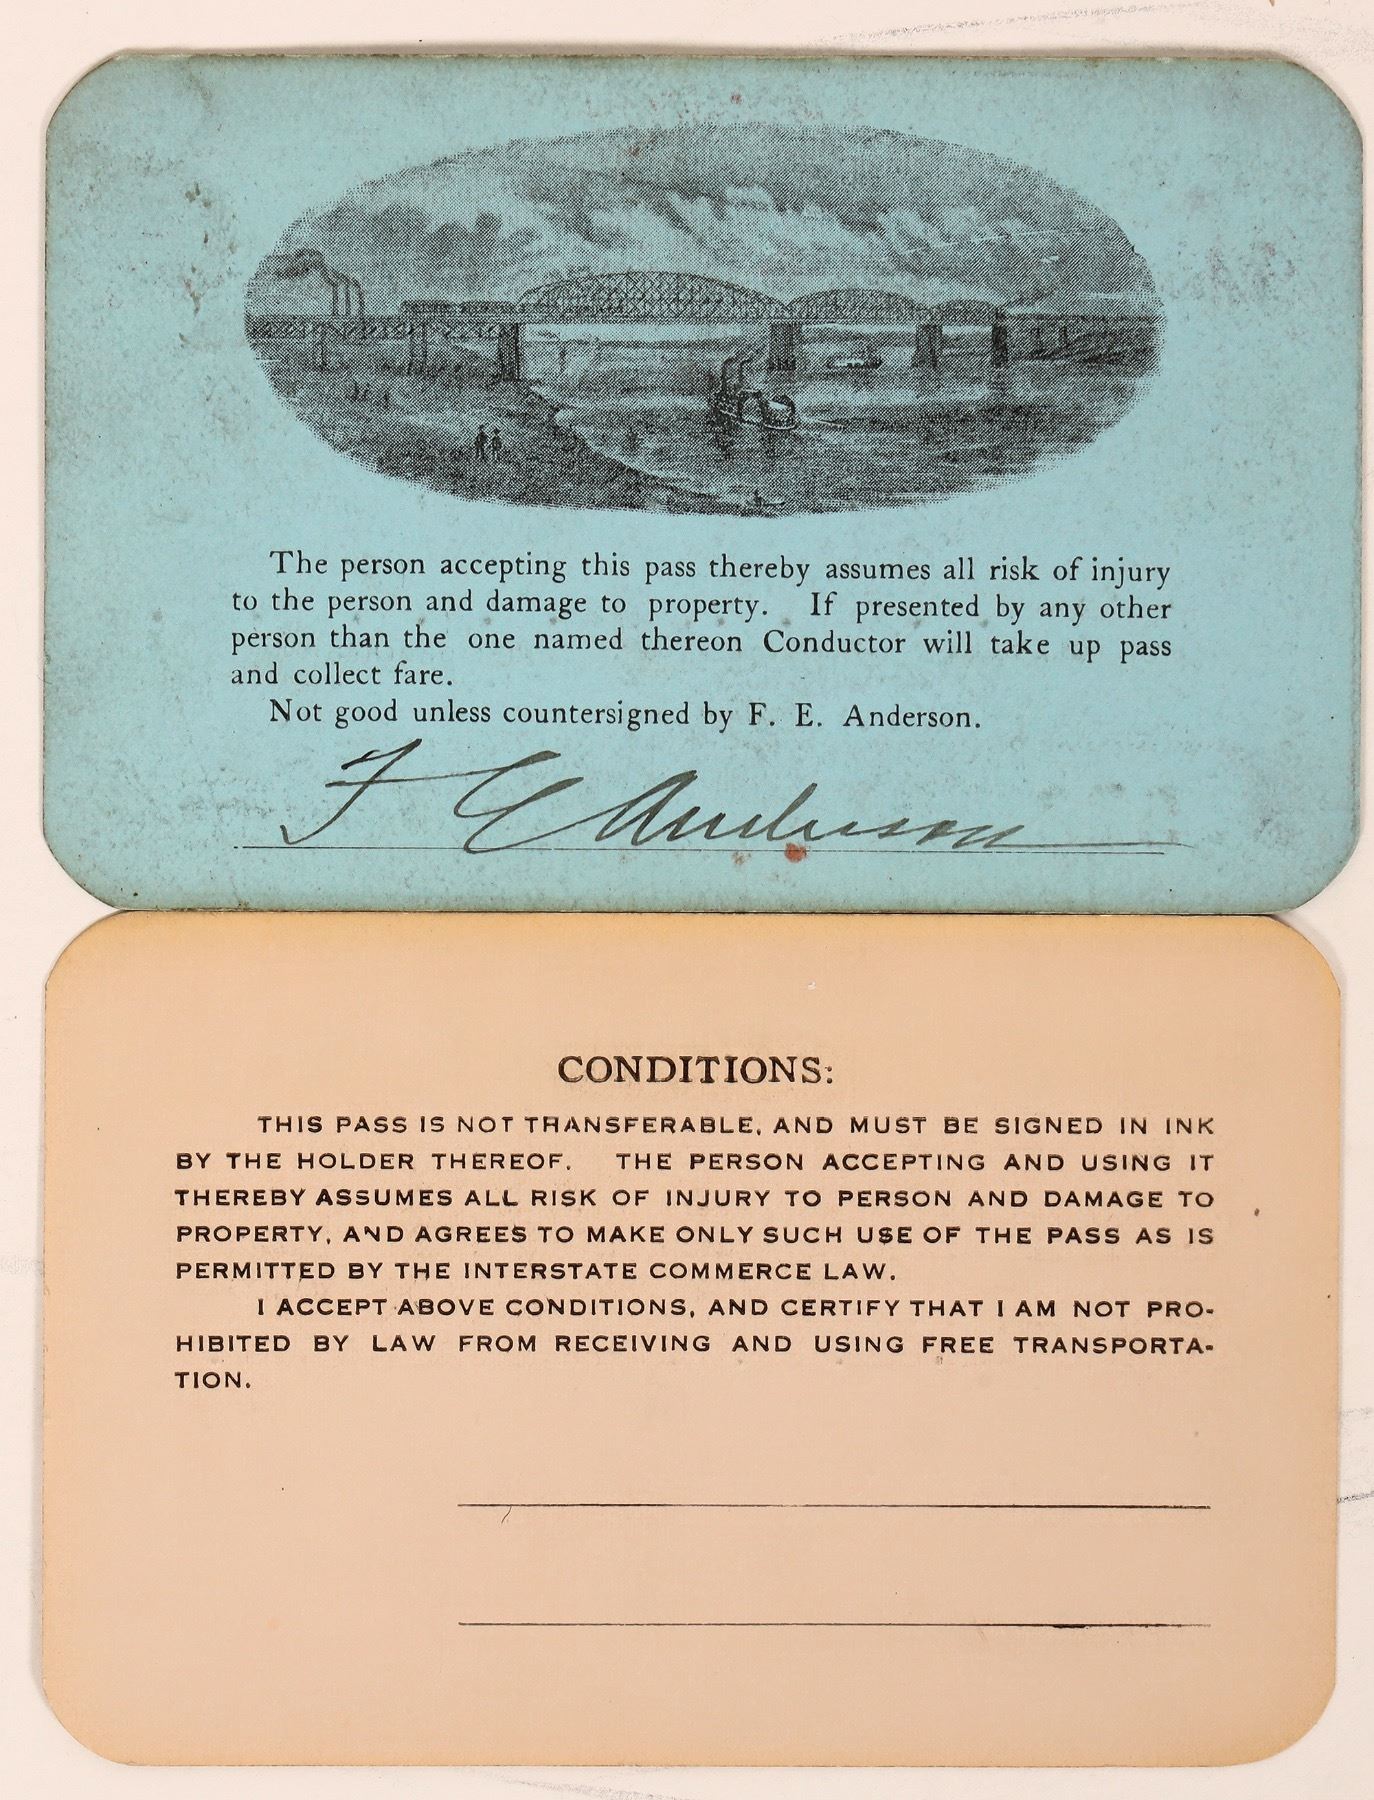 The person accepting this pass thereby assumes all risk of injury
to the person and damage to property. If presented by any other
person than the one named thereon Conductor will take up pass
and collect fare.
Not good unless countersigned by F. E. Anderson.
F E Anderson
CONDITIONS:
THIS PASS IS NOT TRANSFERABLE, AND MUST BE SIGNED IN INK
BY THE HOLDER THEREOF. THE PERSON ACCEPTING AND USING IT
THEREBY ASSUMES ALL RISK OF INJURY TO PERSON AND DAMAGE TO
PROPERTY, AND AGREES TO MAKE ONLY SUCH USE OF THE PASS AS IS
PERMITTED BY THE INTERSTATE COMMERCE LAW.
I ACCEPT ABOVE CONDITIONS, AND CERTIFY THAT I AM NOT PRO-
HIBITED BY LAW FROM RECEIVING AND USING FREE TRANSPORTA-
TION.